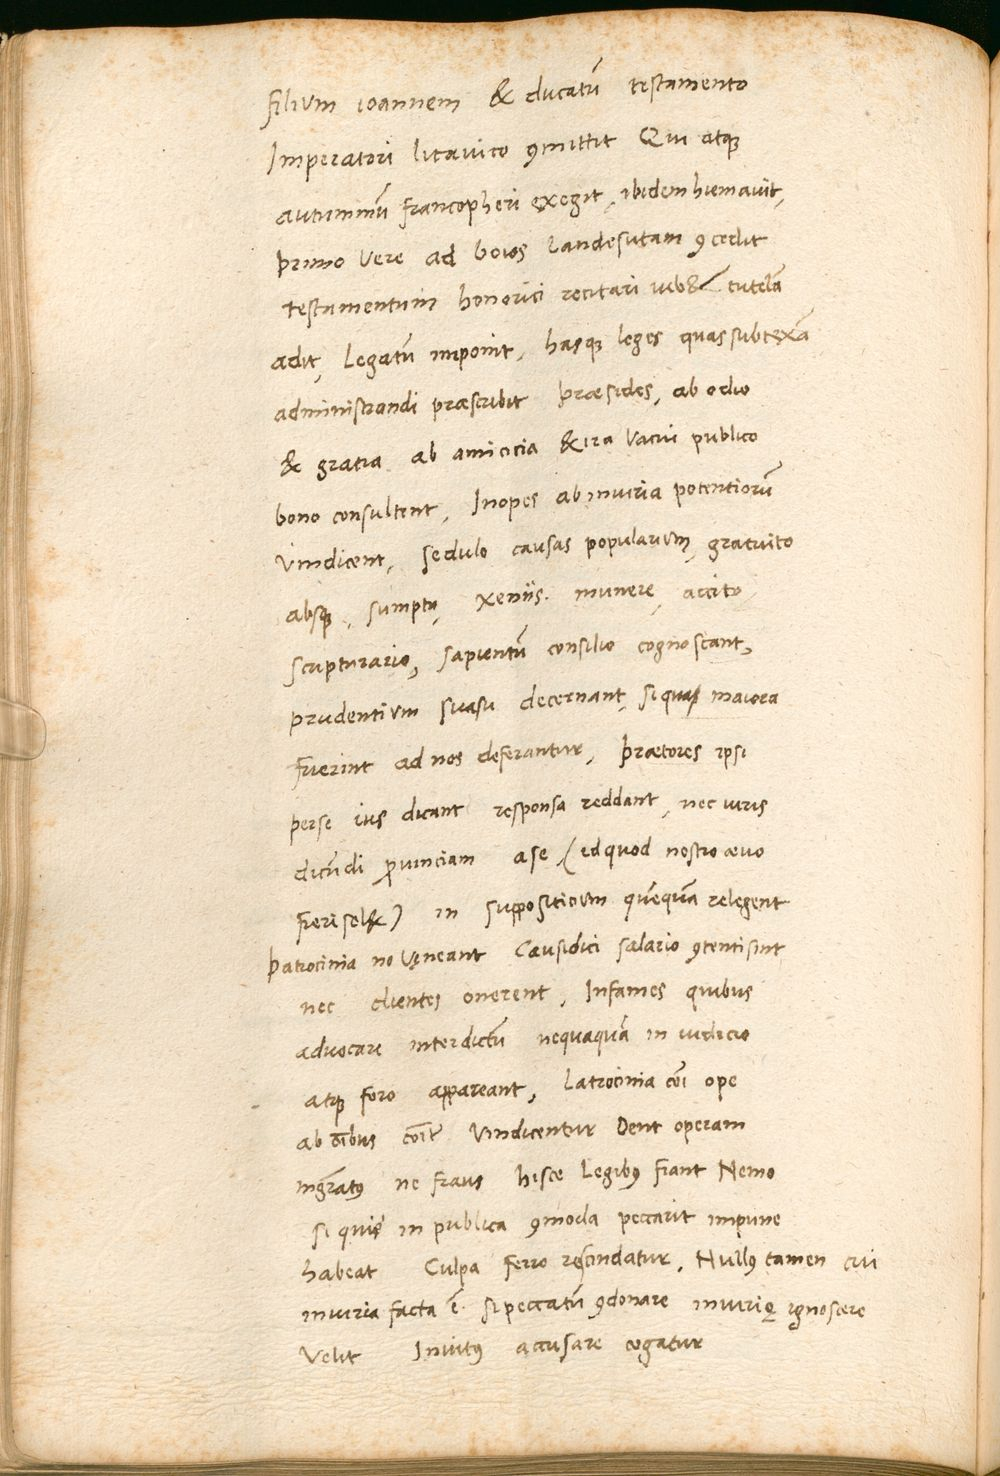 filium ioannem & ducatū testamento
Imperatori litavico ꝯmittit Qui atqꝫ
autumnū francopheri exegit, ibidem hiemavit,
primo Vere ad boios landesutam ꝯcedit
testamentum honorici recitari iub& tutelā
adit, Legatū imponit, hasqꝫ leges quas subtexā
administrandi præscribit præsides, ab odio
& gratia ab amicicia & ira Vacui publico
bono consultent, Inopes ab iniuria potentiorū
Vindicent, sedulo causas popularium gratuito
absqꝫ, sumptu, xeniis. munere, accito
scripturario, sapientū consilio cognoscant,
prudentium suasu decernant, si qua maiora
fuerint ad nos deferantur, prætores ipsi
per se ius dicant responsa reddant, nec iuris
dicūdi ꝓvinciam a se (id quod nostro ævo
fieri sol&) in supposititium quēquā relegent
patrocinia no Vęneant Causidici salario ꝯtenti sint
nec clientes onerent, Infames quibus
advocare interdictū nequaquā in iudicio
atqꝫ foro appareant, Latrocinia cōi ope
ab oībus cōit Vindicentur Dent operam
mgr̄atꝰ ne fraus hisce Legibꝰ fiant Nemo
si quis in publica ꝯmoda peccarit impune
habeat Culpa ferro rescindatur, Nullꝰ tamen cui
iniuria facta ē. si peccatū ꝯdonare iniurię ignoscere
Velit Invitꝰ accusare cogatur